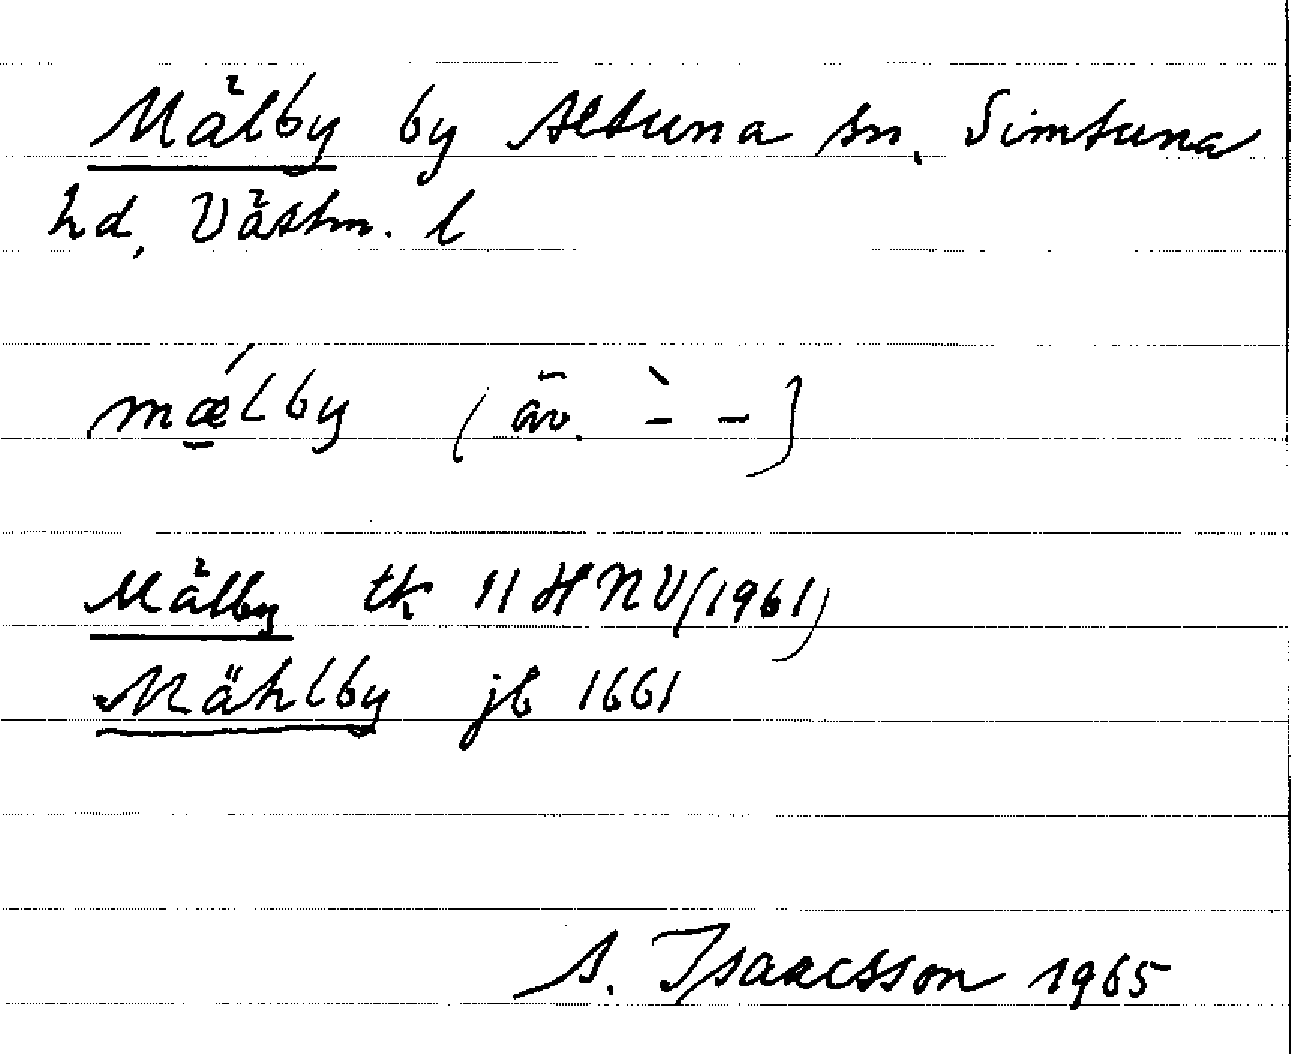 Mälby by Altuna sn, Simtuna
hd, Västm. l
mǽ̱lby (äv. ̀- -)
Mälby tk 11 H NV (1961)
Mählby jb 1661
A. Isaacsson 1965